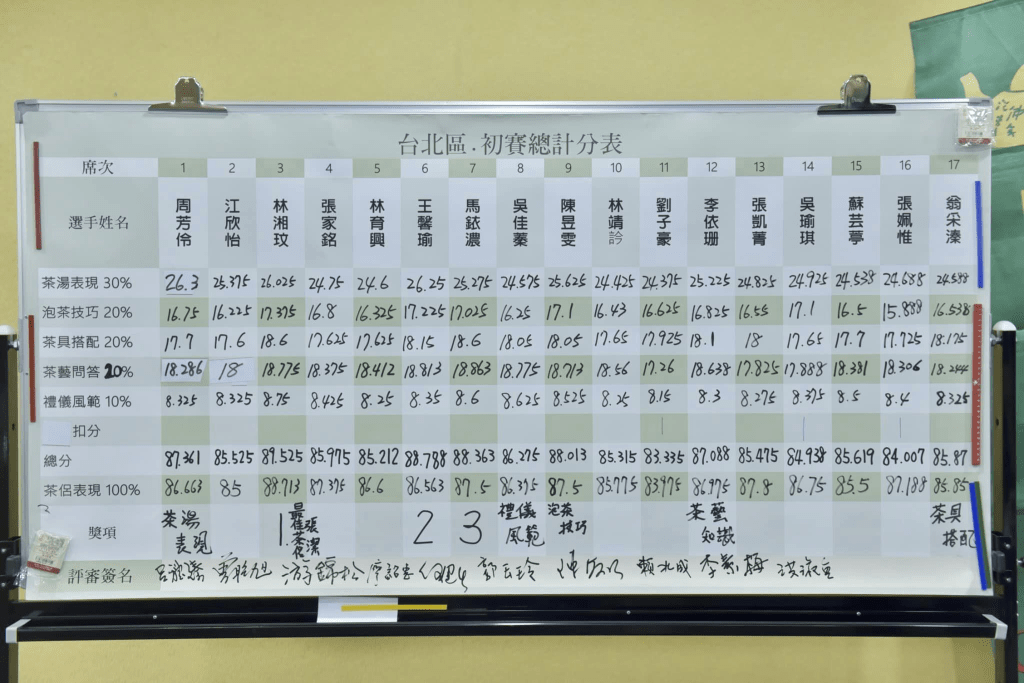 台北區.初賽總計分表
席次 1 2 3 4 5 6 7 8 9 10 11 12 13 14 15 16 17
選手姓名 周芳伶 江欣怡 林湘玟 張家銘 林育興 王馨瑜 馬銥濃 吳佳蓁 陳昱雯 林靖訡 劉子豪 李依珊 張凱菁 吳瑜琪 蘇芸葶 張姵惟 翁采溱
茶湯表現 30% 26.3 25.375 26.025 24.75 24.6 26.25 25.275 24.575 25.625 24.425 24.375 25.225 24.825 24.925 24.538 24.688
泡茶技巧 20% 16.75 16.225 17.375 16.8 16.325 17.225 17.025 16.25 17.1 16.43 16.625 16.825 16.55 17.1 16.5 15.888 16.538
茶具搭配 20% 17.7 17.6 18.6 17.625 17.625 18.15 18.6 18.05 18.05 17.65 17.925 18.1 18 17.65 17.7 17.725 18.175
茶藝問答 20% 18.286 18 18.775 18.375 18.412 18.813 18.863 18.775 18.713 18.56 17.26 18.638 17.825 17.888 18.381 18.306
禮儀風範 10% 8.325 8.325 8.75 8.425 8.25 8.35 8.6 8.625 8.525 8.25 8.15 8.3 8.275 8.375 8.5 8.4 8.325
扣分
總分 87.361 85.525 89.525 85.975 85.212 88.788 88.363 86.275 88.013 85.315 83.335 87.088 85.475 84.938 85.619 84.007 85.87
茶侶表現 100% 86.663 85 88.713 87.375 86.6 86.563 87.5 86.375 87.5 85.775 83.975 86.975 87.8 86.75 85.5 87.188 85.85
獎項 茶湯表現 1. 最佳茶侶 張 潔 2 3 禮儀風範 泡茶技巧 茶藝知識 茶具搭配
評審簽名